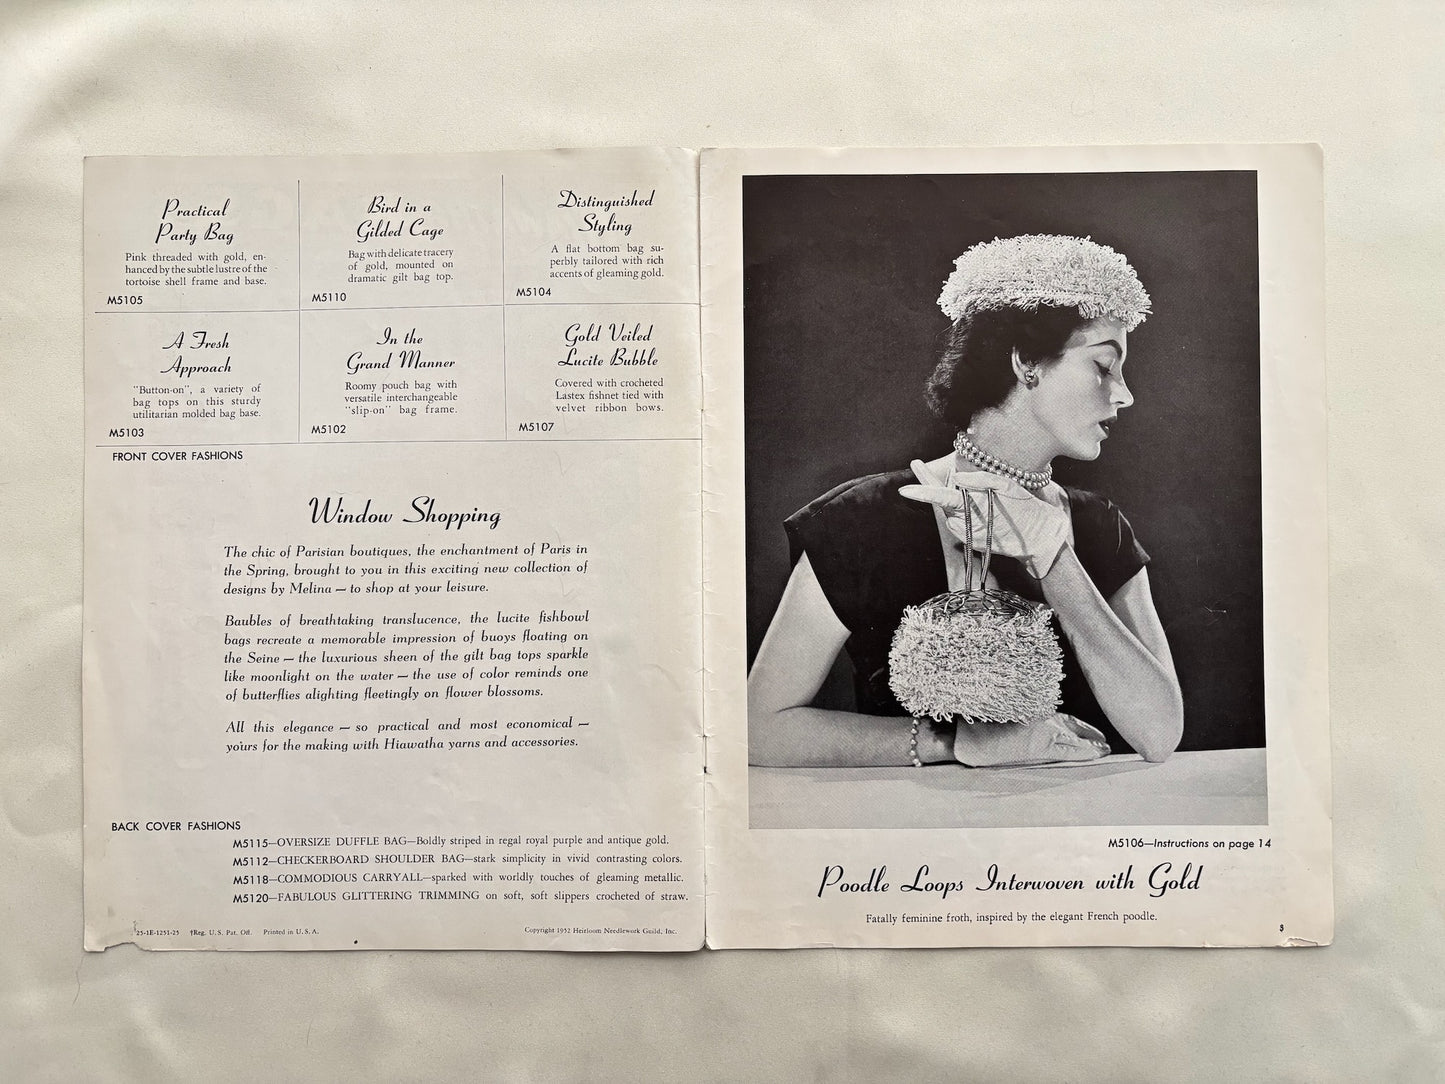 Practical
Party Bag
Pink threaded with gold, en-
hanced by the subtle lustre of the
tortoise shell frame and base.
M5105
Bird in a
Gilded Cage
Bag with delicate tracery
of gold, mounted on
dramatic gilt bag top.
M5110
Distinguished
Styling
A flat bottom bag su-
perbly tailored with rich
accents of gleaming gold.
M5104
A Fresh
Approach
"Button-on", a variety of
bag tops on this sturdy
utilitarian molded bag base.
M5103
In the
Grand Manner
Roomy pouch bag with
versatile interchangeable
"slip-on" bag frame.
M5102
Gold Veiled
Lucite Bubble
Covered with crocheted
Lastex fishnet tied with
velvet ribbon bows.
M5107
FRONT COVER FASHIONS
Window Shopping
The chic of Parisian boutiques, the enchantment of Paris in
the Spring, brought to you in this exciting new collection of
designs by Melina — to shop at your leisure.
Baubles of breathtaking translucence, the lucite fishbowl
bags recreate a memorable impression of buoys floating on
the Seine — the luxurious sheen of the gilt bag tops sparkle
like moonlight on the water — the use of color reminds one
of butterflies alighting fleetingly on flower blossoms.
All this elegance — so practical and most economical —
yours for the making with Hiawatha yarns and accessories.
BACK COVER FASHIONS
M5115—OVERSIZE DUFFLE BAG—Boldly striped in regal royal purple and antique gold.
M5112—CHECKERBOARD SHOULDER BAG—stark simplicity in vivid contrasting colors.
M5118—COMMODIOUS CARRYALL—sparked with worldly touches of gleaming metallic.
M5120—FABULOUS GLITTERING TRIMMING on soft, soft slippers crocheted of straw.
25-1E-1251-25 †Reg. U. S. Pat. Off. Printed in U. S. A.
Copyright 1952 Heirloom Needlework Guild, Inc.
M5106—Instructions on page 14
Poodle Loops Interwoven with Gold
Fatally feminine froth, inspired by the elegant French poodle.
3